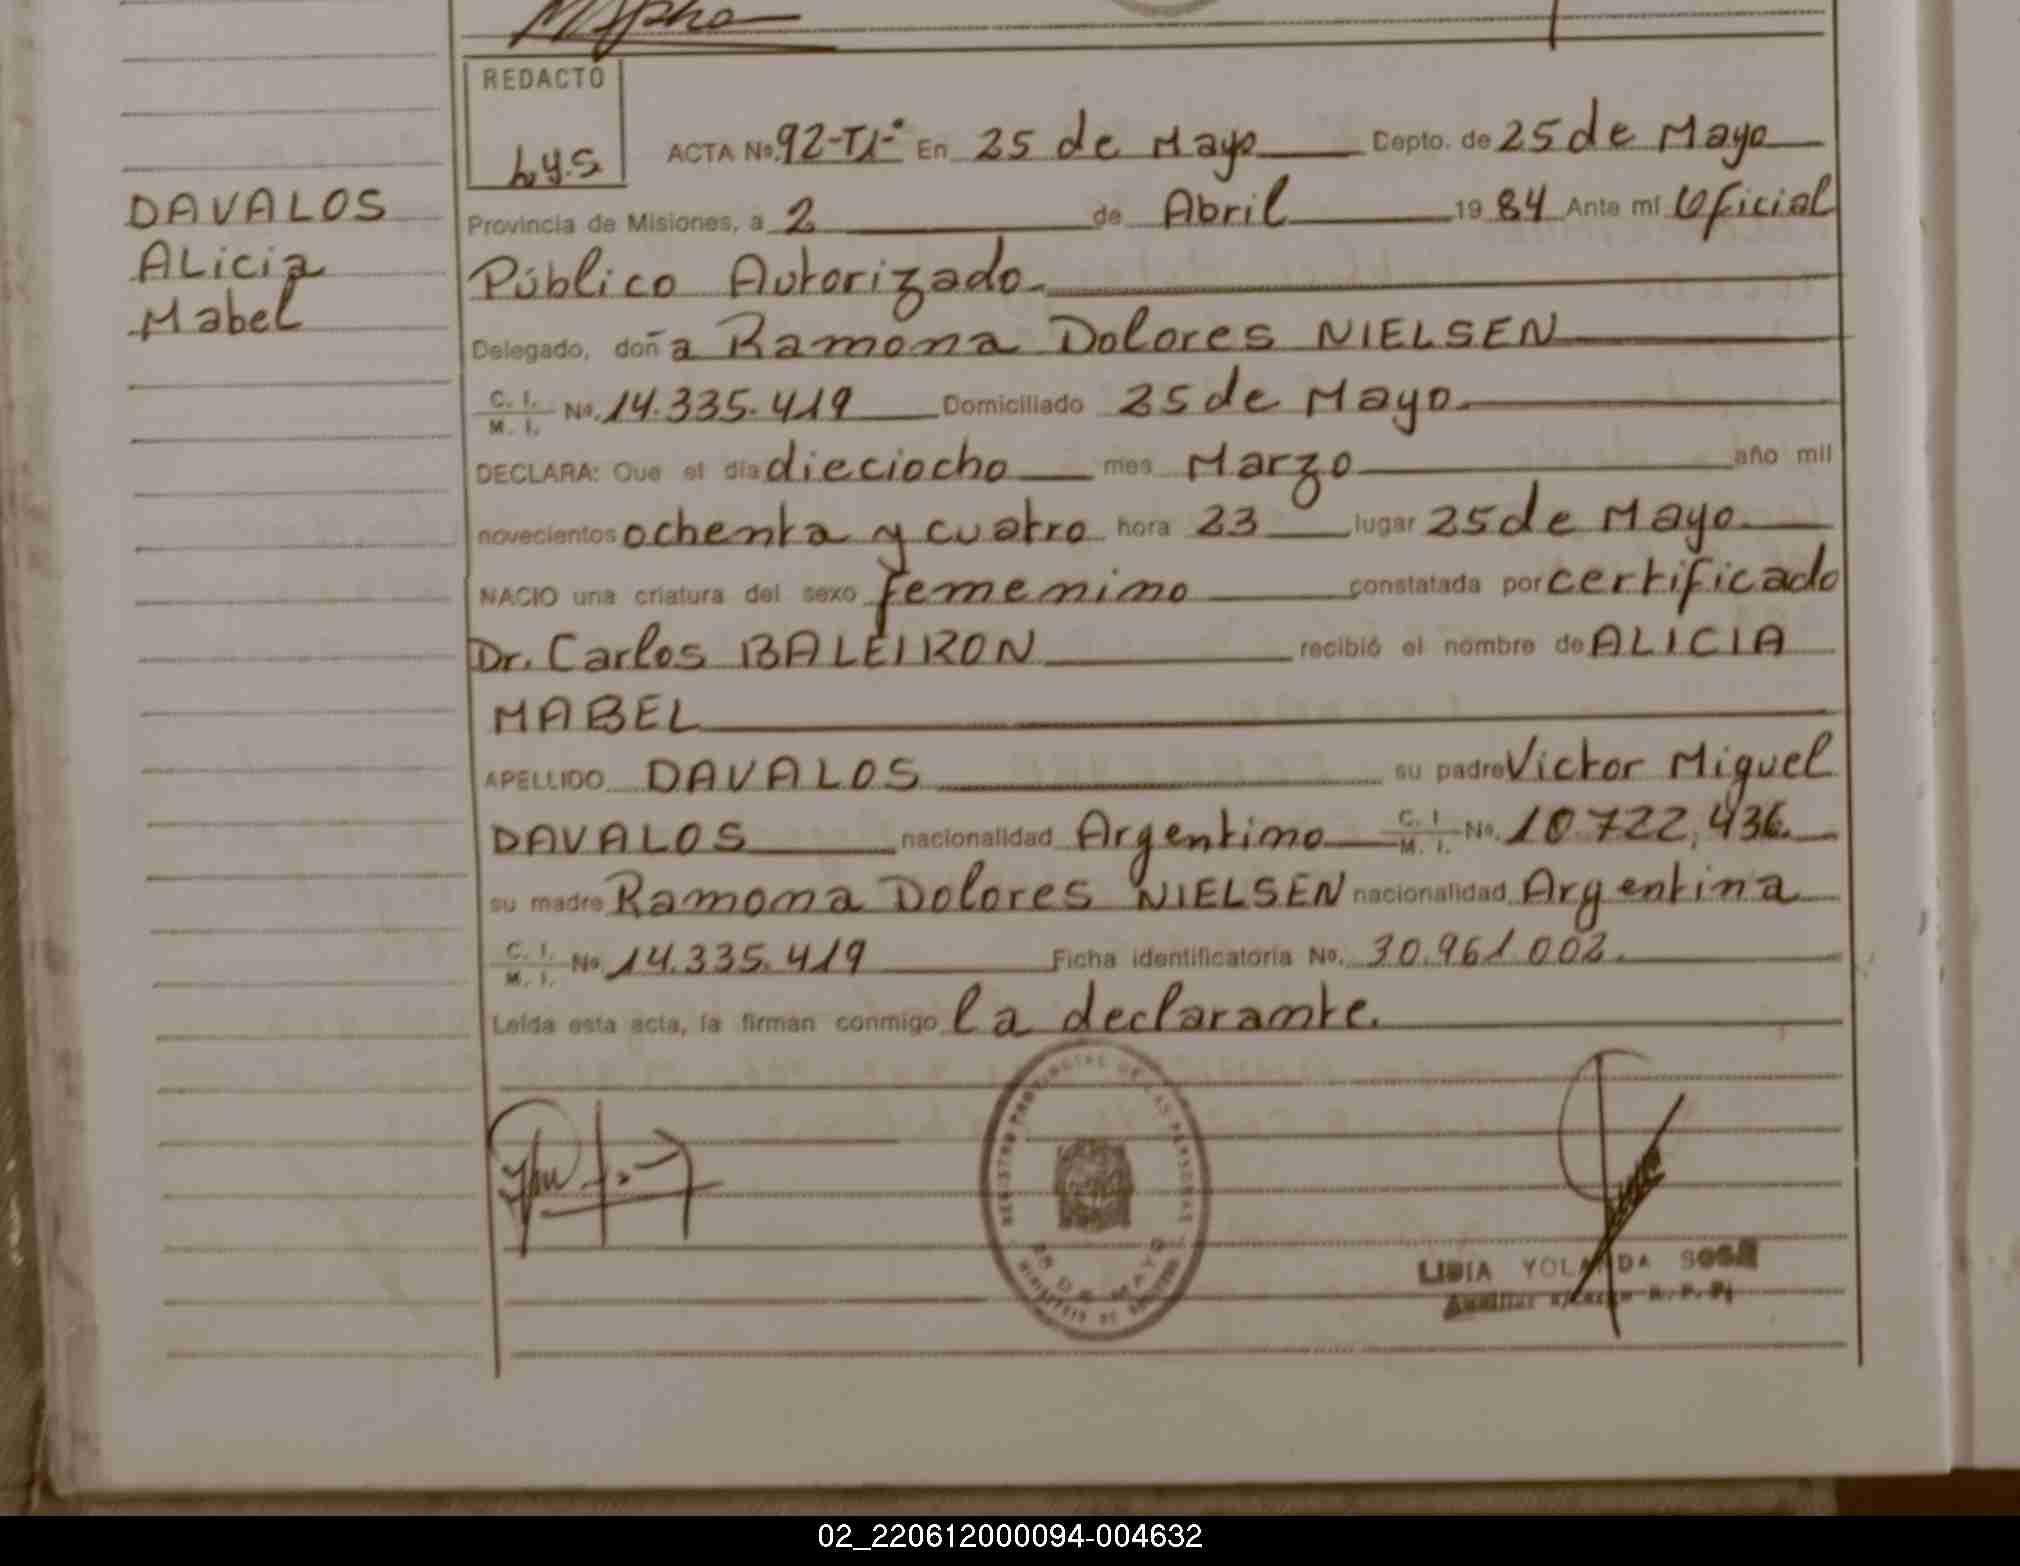 REDACTO
L.y.s
ACTA No. 92-T1-° En 25 de Mayo Depto. de 25 de Mayo
DAVALOS
Alicia
Mabel
Provincia de Misiones, a 2 de Abril 1984 Ante mí Oficial
Público Autorizado.
Delegado, doña Ramona Dolores NIELSEN
C. I. M. I. No. 14.335.419 Domiciliado 25 de Mayo
DECLARA: Que el día dieciocho mes Marzo año mil
novecientos ochenta y cuatro hora 23 lugar 25 de Mayo
NACIO una criatura del sexo femenino constatada por certificado
Dr. Carlos BALEIRON recibió el nombre de ALICIA
MABEL
APELLIDO DAVALOS su padre Victor Miguel
DAVALOS nacionalidad Argentino C. I. M. I. No. 10.722.436.
su madre Ramona Dolores NIELSEN nacionalidad Argentina
C. I. M. I. No. 14.335.419 Ficha identificatoria No. 30.961.002.
Leída esta acta, la firman conmigo la declarante.
REGISTRO PROVINCIAL DE LAS PERSONAS
25 DE MAYO
MINISTERIO DE GOBIERNO
LIDIA YOLANDA SOSA
02_220612000094-004632